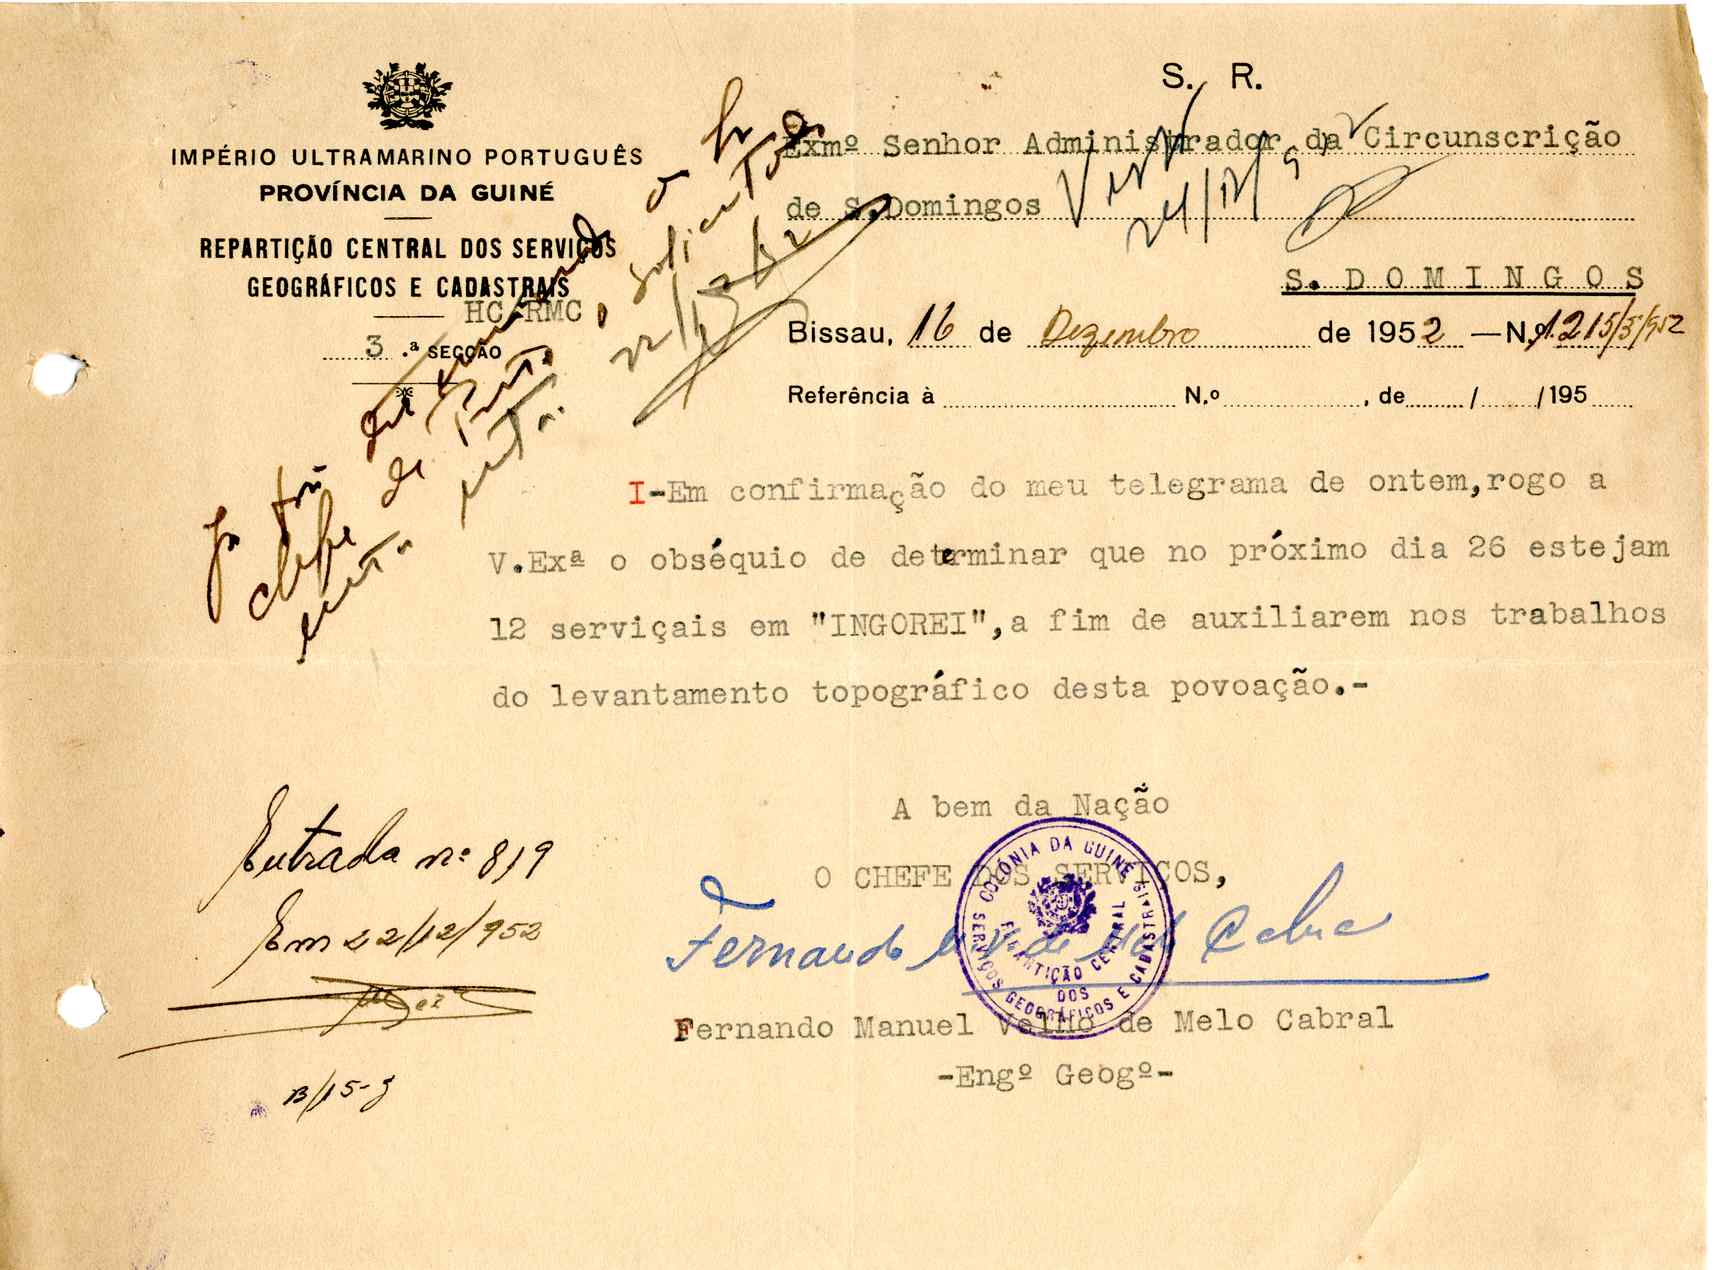 S. R.
IMPÉRIO ULTRAMARINO PORTUGUÊS
PROVÍNCIA DA GUINÉ
REPARTIÇÃO CENTRAL DOS SERVIÇOS
GEOGRÁFICOS E CADASTRAIS
HC/RMC
3 .ª SECÇÃO
Exmº Senhor Administrador da Circunscrição
de S.Domingos
S. D O M I N G O S
Bissau, 16 de Dezembro de 1952 —N.º 1.215/3/952
Referência à N.º , de / /195
Visto
24/12/52
Já foi determinado ao Sr
chefe de Posto, o solicitado
22/12/52
I-Em confirmação do meu telegrama de ontem,rogo a
V.Exª o obséquio de determinar que no próximo dia 26 estejam
12 serviçais em "INGOREI",a fim de auxiliarem nos trabalhos
do levantamento topográfico desta povoação.-
A bem da Nação
O CHEFE DOS SERVIÇOS,
COLÓNIA DA GUINÉ
REPARTIÇÃO CENTRAL
DOS
SERVIÇOS GEOGRÁFICOS E CADASTRAIS
Fernando Cabral
Fernando Manuel Velho de Melo Cabral
-Engº Geogº-
Entrada nº 819
Em 22/12/952
B/15-3